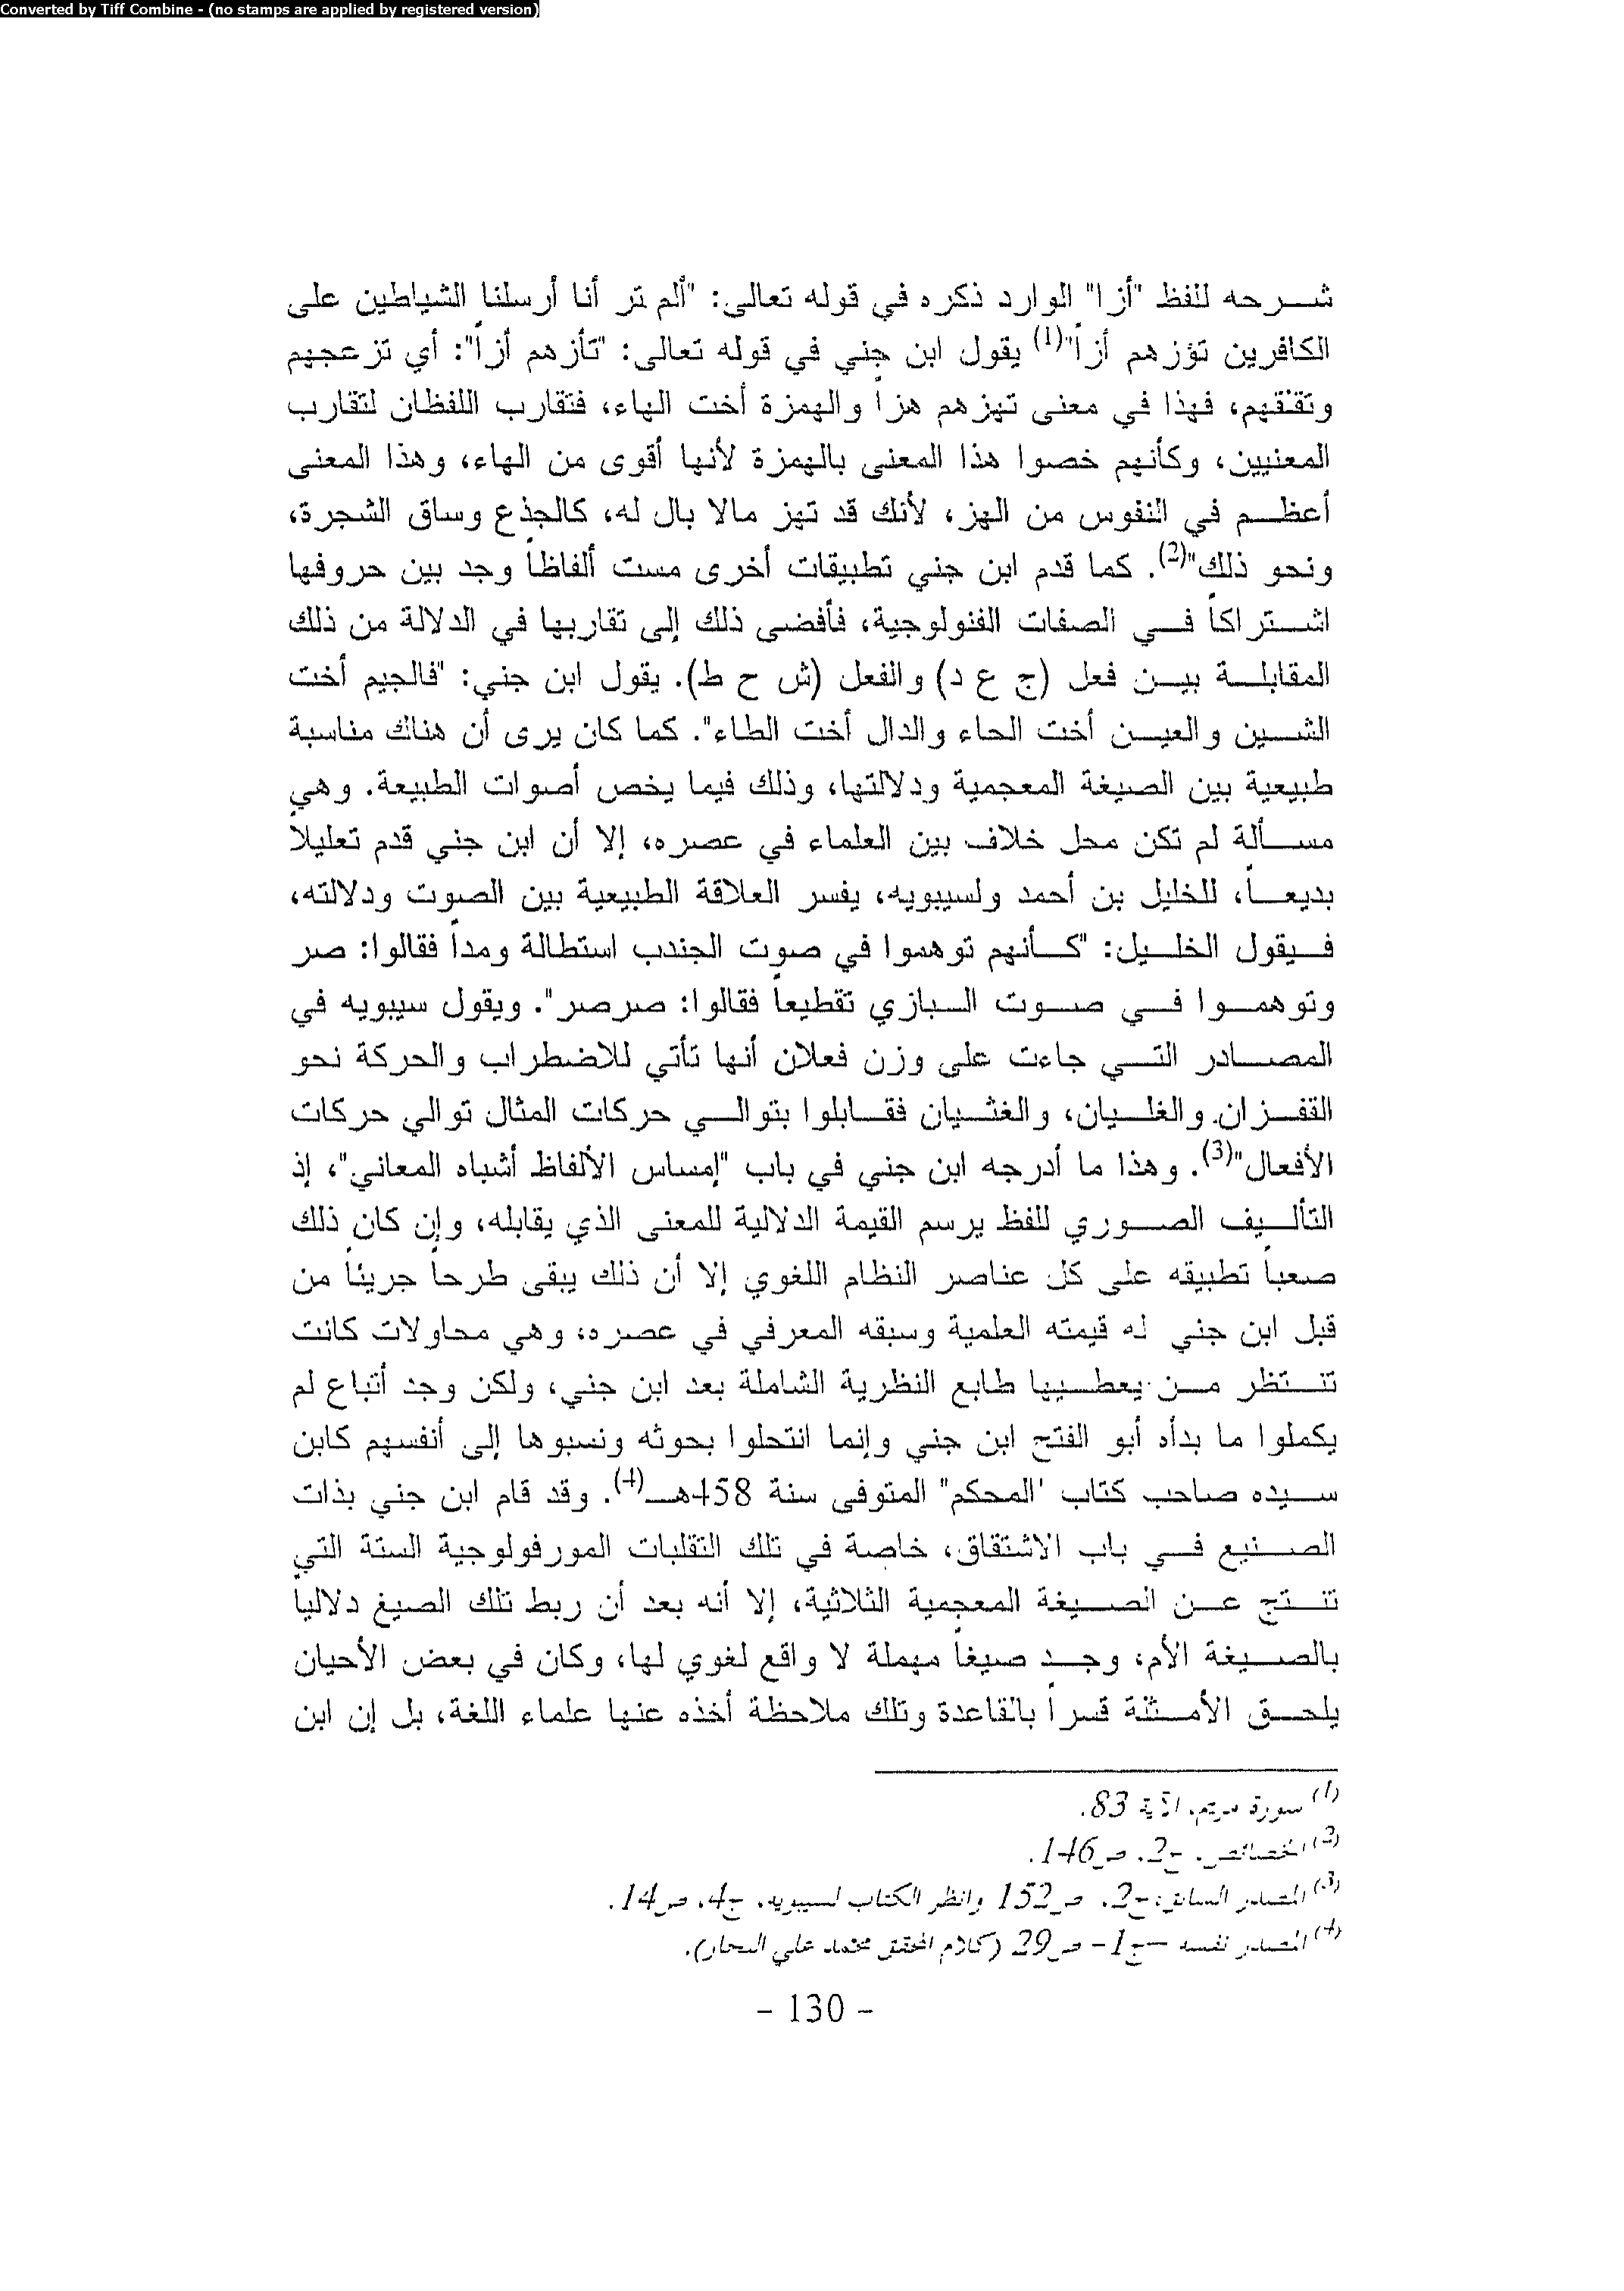 Converted by Tiff Combine - (no stamps are applied by registered version)
شرحه للفظ "أزا" الوارد ذكره في قوله تعالى: "ألم تر أنا أرسلنا الشياطين على
الكافرين تؤزهم أزاً"(1) يقول ابن جني في قوله تعالى: "تأزهم أزاً": أي تزعجهم
وتقلقهم، فهذا في معنى تهزهم هزاً والهمزة أخت الهاء، فتقارب اللفظان لتقارب
المعنيين، وكأنهم خصوا هذا المعنى بالهمزة لأنها أقوى من الهاء، وهذا المعنى
أعظم في النفوس من الهز، لأنك قد تهز مالا بال له، كالجذع وساق الشجرة،
ونحو ذلك"(2). كما قدم ابن جني تطبيقات أخرى مست ألفاظاً وجد بين حروفها
اشتراكاً في الصفات الفنولوجية، فأفضى ذلك إلى تقاربها في الدلالة من ذلك
المقابلة بين فعل (ج ع د) والفعل (ش ح ط). يقول ابن جني: "فالجيم أخت
الشين والعين أخت الحاء والدال أخت الطاء". كما كان يرى أن هناك مناسبة
طبيعية بين الصيغة المعجمية ودلالتها، وذلك فيما يخص أصوات الطبيعة. وهي
مسألة لم تكن محل خلاف بين العلماء في عصره، إلا أن ابن جني قدم تعليلاً
بديعاً، للخليل بن أحمد ولسيبويه، يفسر العلاقة الطبيعية بين الصوت ودلالته،
فيقول الخليل: "كأنهم توهموا في صوت الجندب استطالة ومداً فقالوا: صر
وتوهموا في صوت البازي تقطيعاً فقالوا: صرصر". ويقول سيبويه في
المصادر التي جاءت على وزن فعلان أنها تأتي للاضطراب والحركة نحو
القفزان والغليان، والغثيان فقابلوا بتوالي حركات المثال توالي حركات
الأفعال"(3). وهذا ما أدرجه ابن جني في باب "إمساس الألفاظ أشباه المعاني"، إذ
التأليف الصوري للفظ يرسم القيمة الدلالية للمعنى الذي يقابله، وإن كان ذلك
صعباً تطبيقه على كل عناصر النظام اللغوي إلا أن ذلك يبقى طرحاً جريئاً من
قبل ابن جني له قيمته العلمية وسبقه المعرفي في عصره، وهي محاولات كانت
تنتظر من يعطيها طابع النظرية الشاملة بعد ابن جني، ولكن وجد أتباع لم
يكملوا ما بدأه أبو الفتح ابن جني وإنما انتحلوا بحوثه ونسبوها إلى أنفسهم كابن
سيده صاحب كتاب "المحكم" المتوفى سنة 458هـ(4). وقد قام ابن جني بذات
الصنيع في باب الاشتقاق، خاصة في تلك التقلبات المورفولوجية الستة التي
تنتج عن الصيغة المعجمية الثلاثية، إلا أنه بعد أن ربط تلك الصيغ دلاليا
بالصيغة الأم، وجد صيغاً مهملة لا واقع لغوي لها، وكان في بعض الأحيان
يلحق الأمثلة قسراً بالقاعدة وتلك ملاحظة أخذه عنها علماء اللغة، بل إن ابن
(1) سورة مريم، الآية 83.
(2) الخصائص. ج2. ص146.
(3) المصدر السابق: ج2. ص152 وانظر الكتاب لسيبويه. ج4، ص14.
(4) المصدر نفسه -ج1- ص29 (كلام المحقق محمد علي النجار).
- 130 -